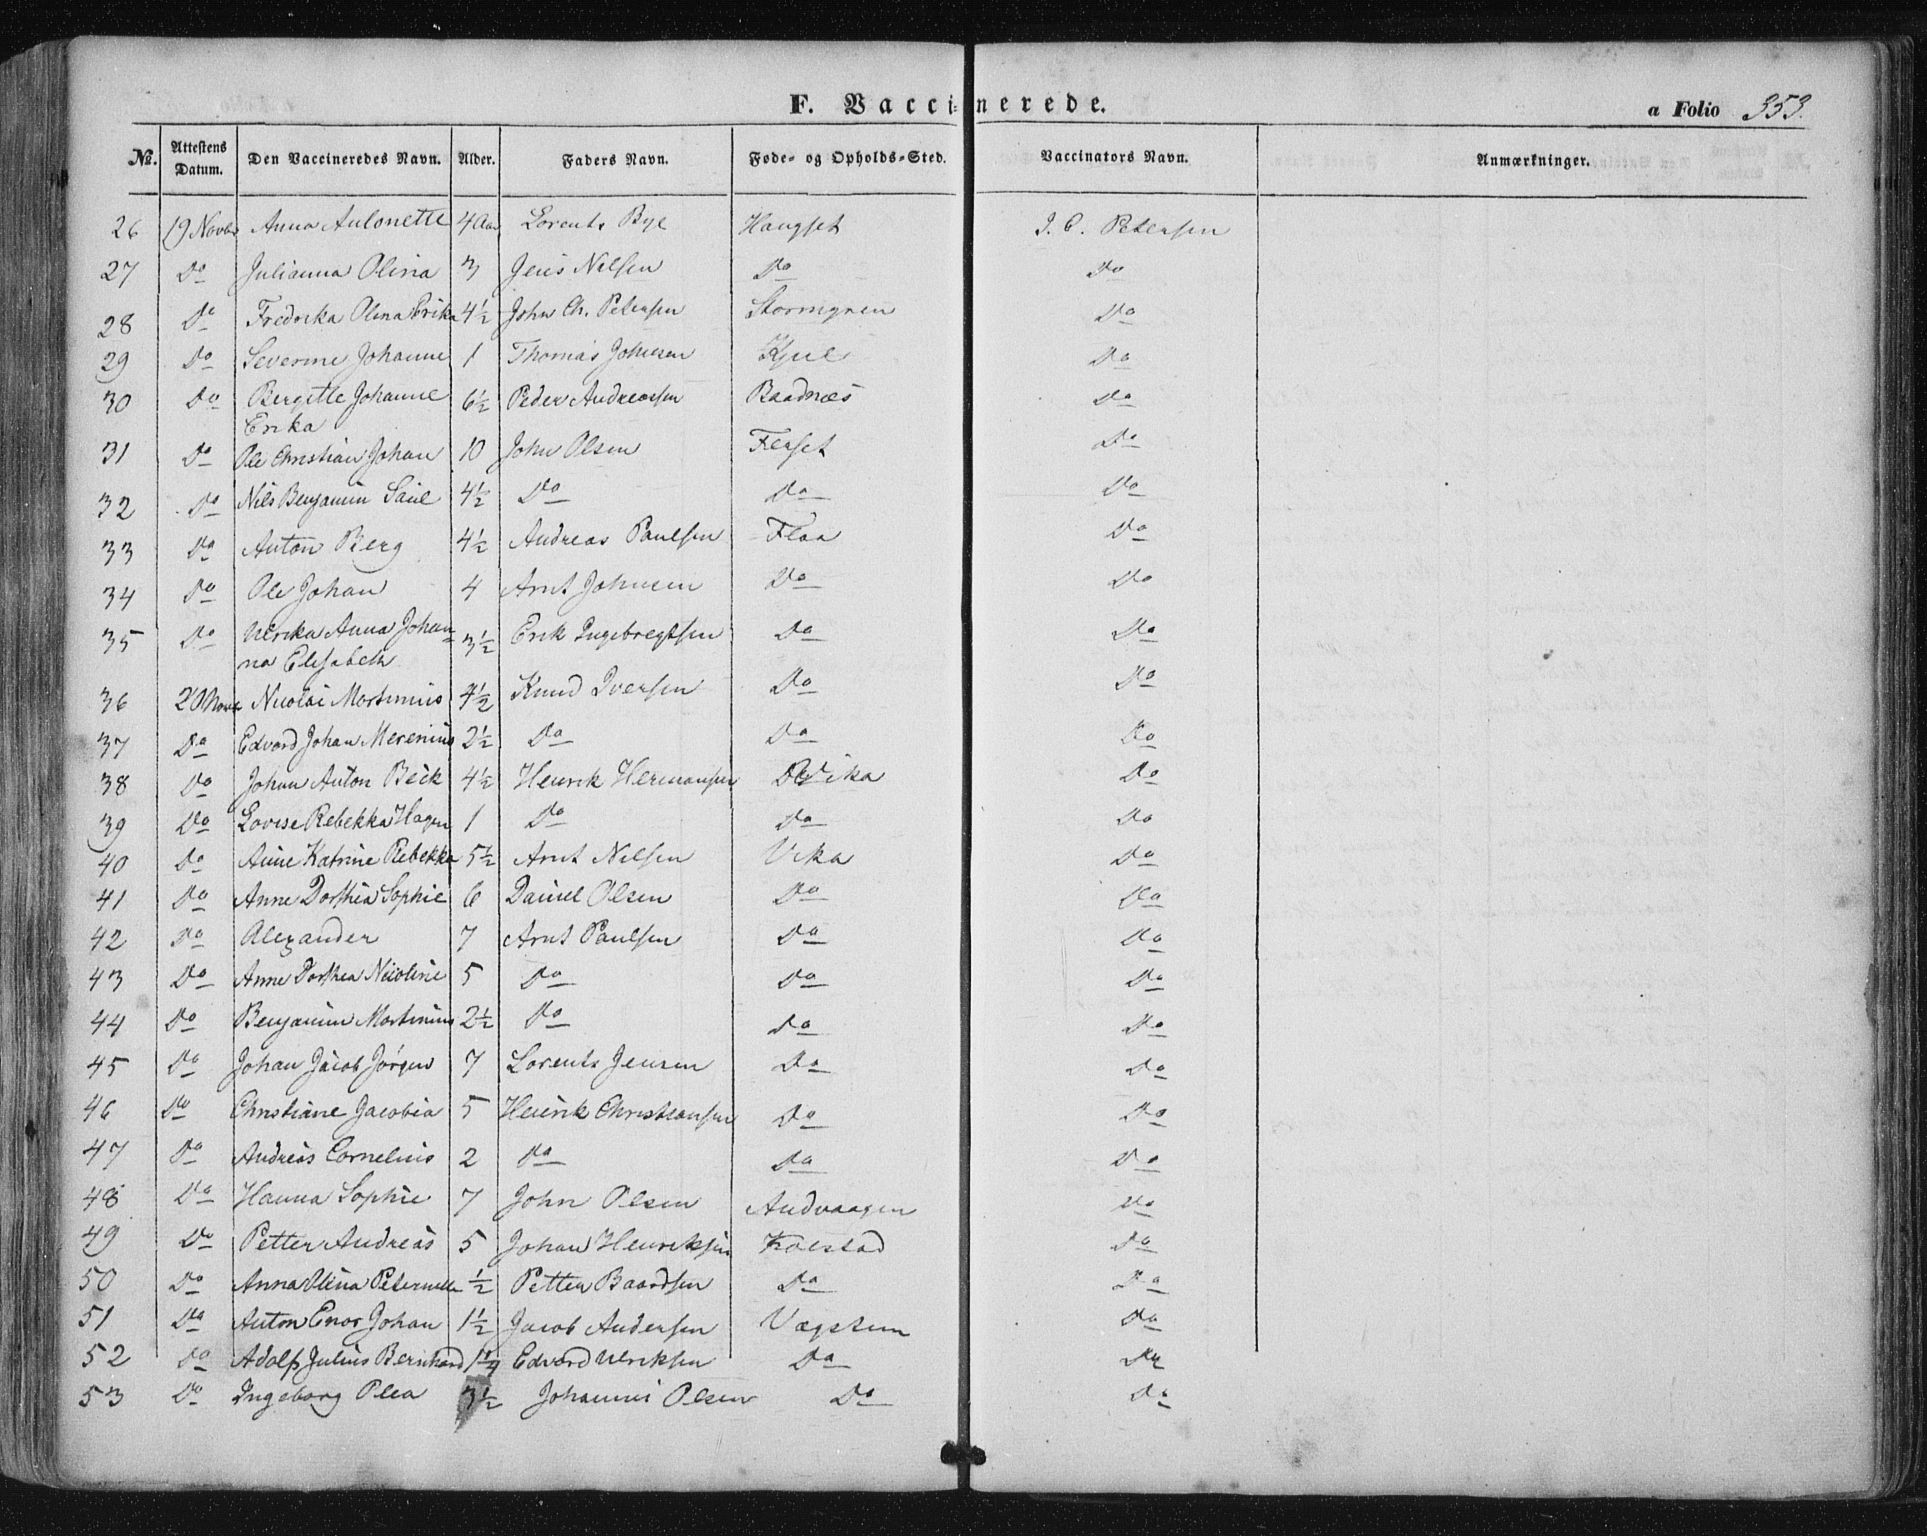 F. Vaccinerede.
a Folio 353.
No. Attestens Datum. Den Vaccineredes Navn. Alder. Faders Navn. Føde- og Opholds-Sted. Vaccinators Navn. Anmærkninger.
26 19 Novbr Anna Antonette 4 Aar Lorents Bye Haugset J. C. Petersen
27 Do Julianna Olina 3 Jens Nilsen Do Do
28 Do Fredrika Olina Erika 4½ John Ch. Petersen Stormyren Do
29 Do Severine Johanne 1 Thomas Johnsen Do
30 Do Bergitte Johanne 6½ Peder Andreassen Baadnæs Do
Erika
31 Do Ole Christian Johan 10 John Olsen Do
32 Do Nils Benjamin 4½ Do Do Do
33 Do Anton Berg 4½ Andreas Paulsen Flaa Do
34 Do Ole Johan 4 Arnt Johnsen Do Do
35 Do Ulrika Anna Johan- 3½ Erik Ingebregtsen Do Do
na Elisabeth
36 20 Novbr Nicolai Martinius 4½ Knud Iversen Do Do
37 Do Edvard Johan Merenius 2½ Do Do Do
38 Do Johan Anton Beck 4½ Henrik Hermansen Vika Do
39 Do Lovise Rebekka Hagen 1 Do Do Do
40 Do Anne Katrine Rebekka 5½ Arnt Nilsen Vika Do
41 Do Anne Dorthea Sophie 6 Daniel Olsen Do Do
42 Do Alexander 7 Arnt Paulsen Do Do
43 Do Anne Dorthea Nicoline 5 Do Do Do
44 Do Benjamin Martinius 2½ Do Do Do
45 Do Johan Jacob Jørgen 7 Lorents Jensen Do Do
46 Do Christiane Jacobia 5 Henrik Christiansen Do Do
47 Do Andreas Cornelius 2 Do Do Do
48 Do Hanna Sophie 7 John Olsen Andvaagen Do
49 Do Petter Andreas 5 Johan Henriksen Kolstad Do
50 Do Anna Olina Peternelle ½ Petter Baardsen Do Do
51 Do Anton Enor Johan 1½ Jacob Andersen Do
52 Do Adolf Julius Bernhard 1¼ Edvard Ulriksen Do Do
53 Do Ingeborg Olea 3½ Johannes Olsen Do Do